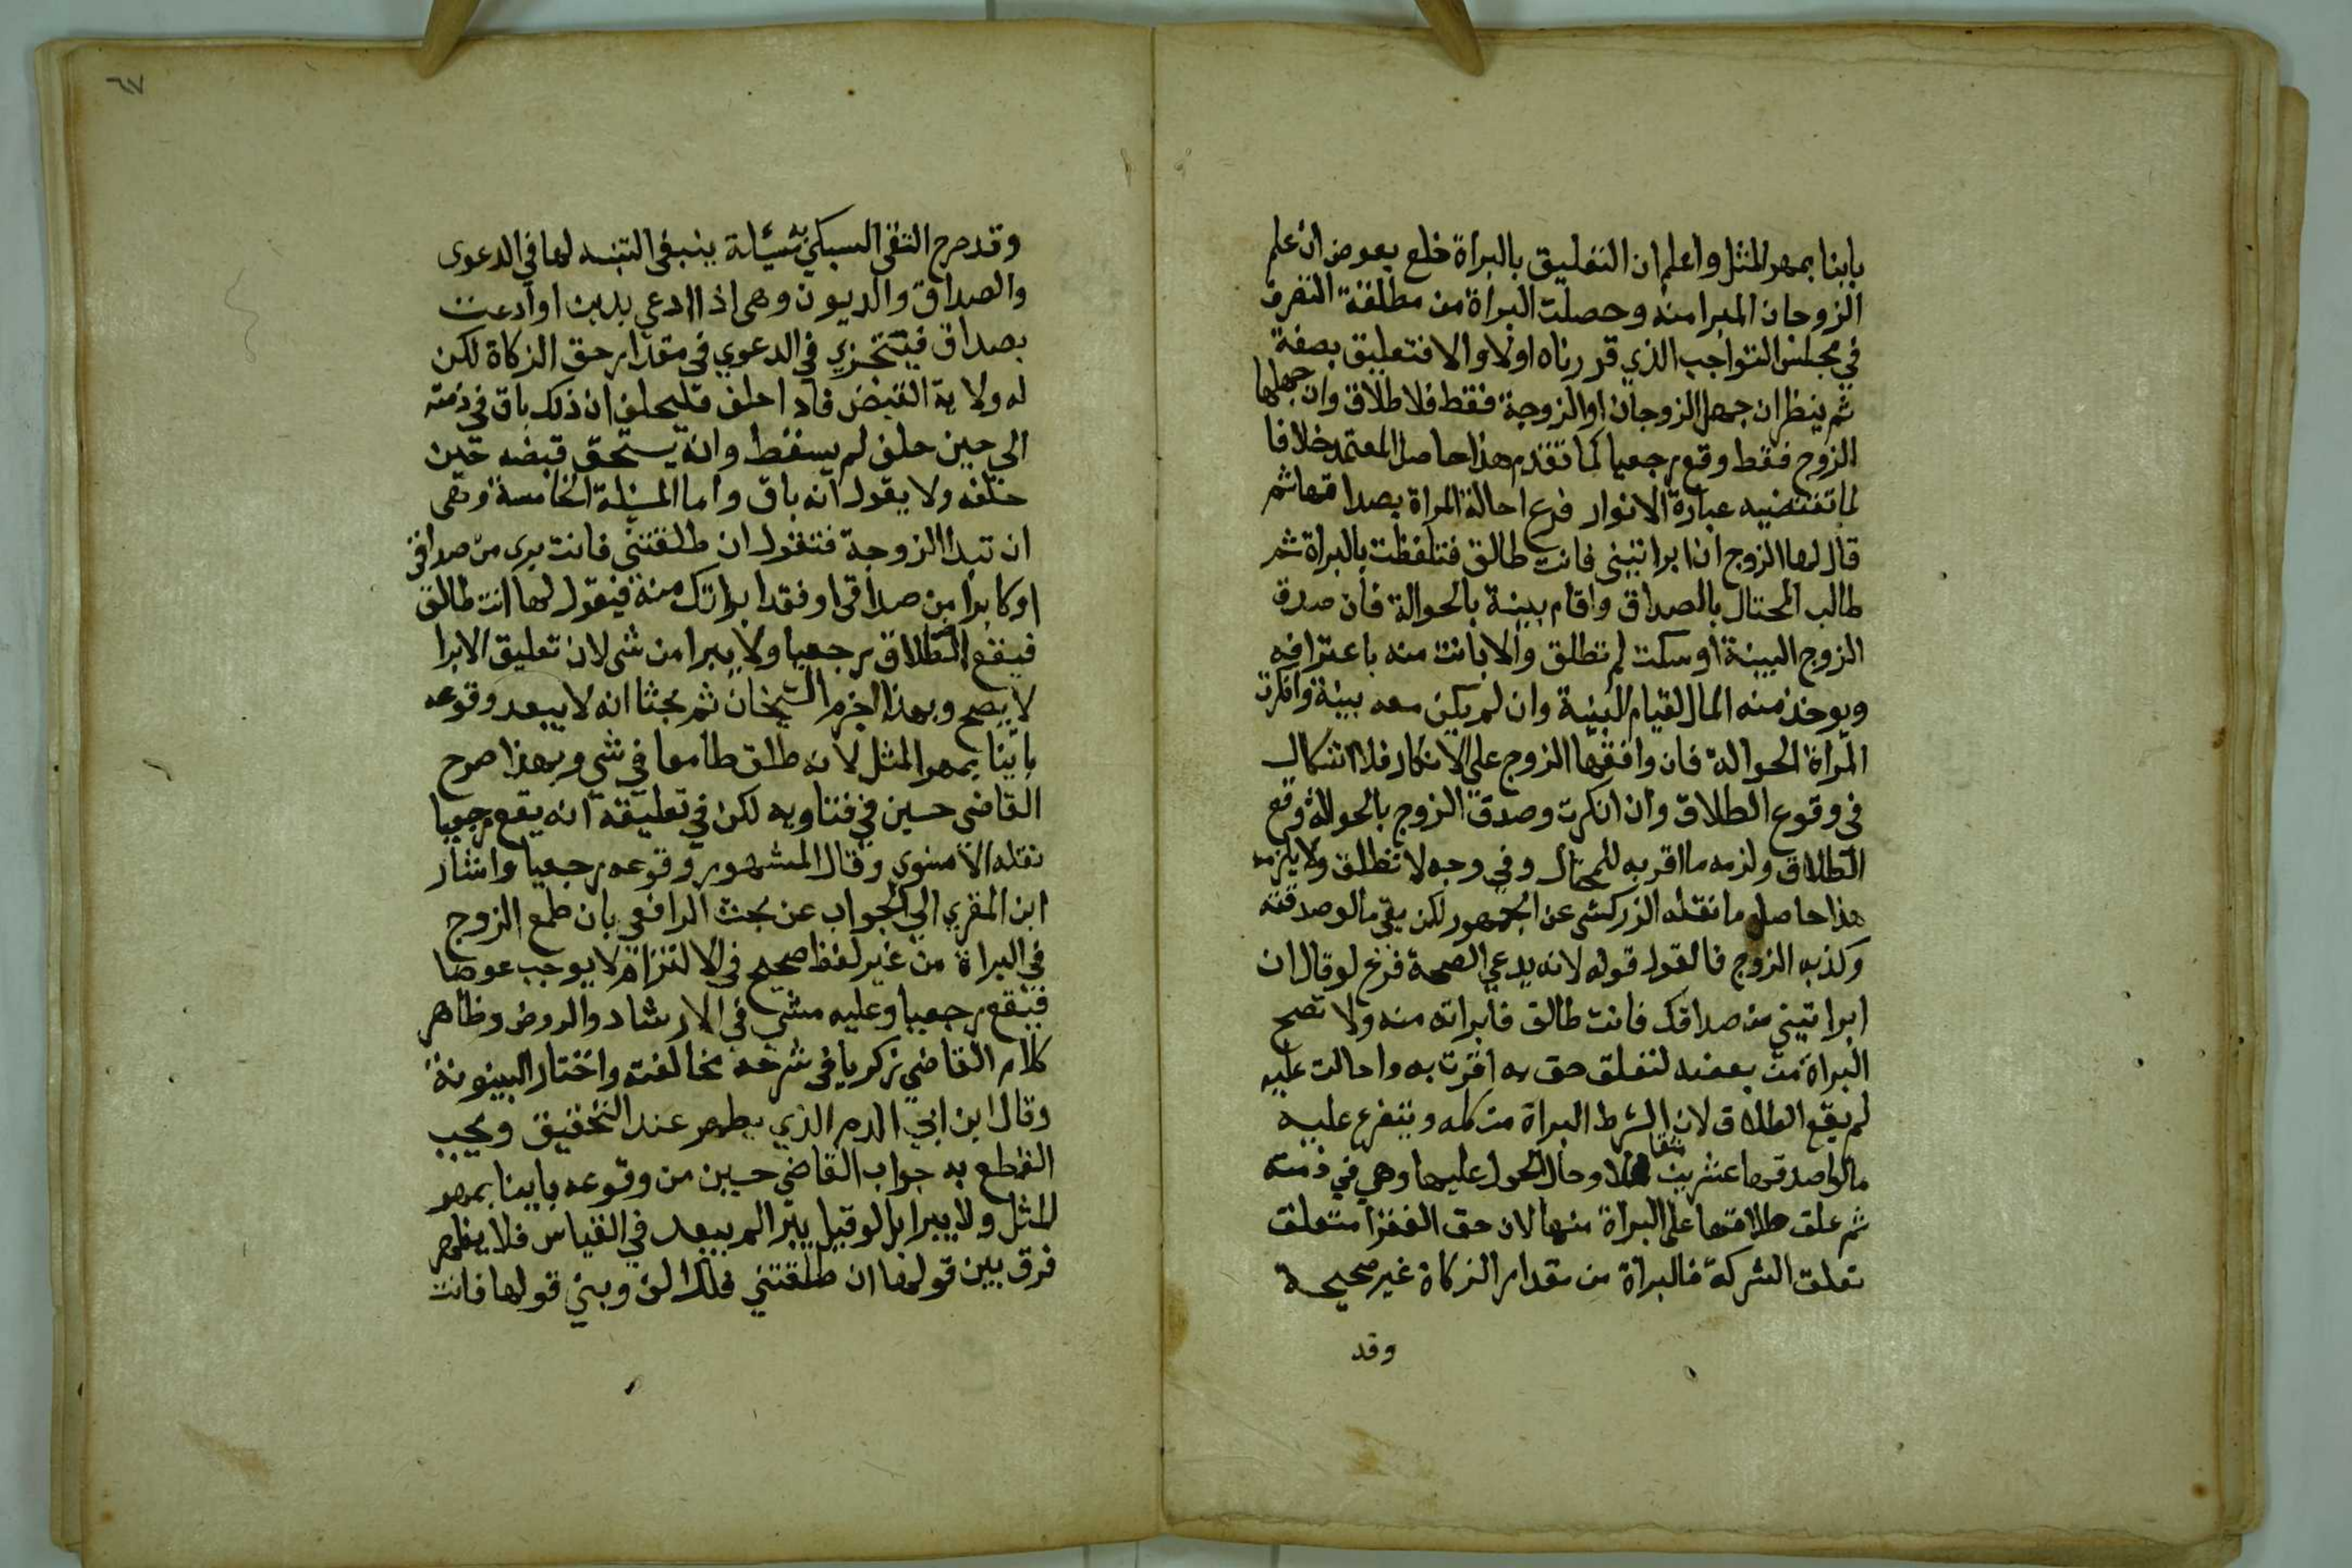 باينا بمهر المثل واعلم ان التعليق بالبراة خلع بعوض ان علم
الزوجان المبرا منه وحصلت البراة من مطلقة التصرف
في مجلس التواجب الذي قررناه اولا والا فتعليق بصفة
ثم ينظر ان جهل الزوجان او الزوجة فقط فلا طلاق وان جهلها
الزوج فقط وقع رجعيا كما تقدم هذا حاصل المعتمد خلافا
لما تقتضيه عبارة الانوار فرع احالة المراة بصداقها ثم
قال لها الزوج ان ابراتيني فانت طالق فتلفظت بالبراة ثم
طالب المحتال بالصداق واقام بينة بالحوالة فان صدق
الزوج البينة او سكت لم تطلق والا بانت منه باعترافه
ويوخذ منه المال لقيام البينة وان لم يكن معه بينة وانكرت
المراة الحوالة فان وافقها الزوج علي الانكار فلا اشكال
في وقوع الطلاق وان انكرت وصدق الزوج بالحوالة وقع
الطلاق ولزمه ما اقر به للمحتال وفي وجه لا تطلق ولا يلزمه
هذا حاصل ما نقله الزركشي عن الجمهور لكن بقي ما لو صدقته
وكذبه الزوج فالقول قوله لانه يدعي الصحة فرع لو قال ان
ابراتيني من صداقك فانت طالق فابراته منه ولا تصح
البراة من بعضه لتعلق حق به اقرت به واحالت عليه
لم يقع الطلاق لان الشرط البراة من كله ويتفرع عليه
ما لو اصدقها عشرين مثقالا وحال الحول عليها وهي في ذمته
ثم علق طلاقها علي البراة منها لان حق الفقرا متعلق
تعلق الشركة فالبراة من مقدار الزكاة غير صحيحة
وقد
٦٧
وقد صرح التقي السبكي بمسئلة ينبغي التنبه لها في الدعوى
والصداق والديون وهي اذا ادعي بدين او ادعت
بصداق في الدعوي في مقدار حق الزكاة لكن
له ولاية القبض فاذا حلف فليحلف ان ذلك باق في ذمته
الي حين حلف لم يسقط وانه يستحق قبضه حين
حلفه ولا يقول انه باق واما المسئلة الخامسة وهي
ان تبدا الزوجة فتقول ان طلقتني فانت بري من صداقي
او كا برا من صداقي او فقد ابراتك منه فيقول لها انت طالق
فيقع الطلاق رجعيا ولا يبرا من شي لان تعليق الابرا
لا يصح وبهذا جزم الشيخان ثم بحثا انه لا يبعد وقوعه
باينا بمهر المثل لانه طلق طامعا في شي وبهذا صرح
القاضي حسين في فتاويه لكن في تعليقه انه يقع رجعيا
نقله الاسنوي وقال المشهور وقوعه رجعيا واشار
ابن المقري الي الجواب عن بحث الرافعي بان طمع الزوج
في البراة من غير لفظ صحيح في الالتزام لا يوجب عوضا
فيقع رجعيا وعليه مشي في الارشاد والروض وظاهر
كلام القاضي زكريا في شرحه مخالفته واختار البينونة
وقال ابن ابي الدم الذي يظهر عند التحقيق ويجب
القطع به جواب القاضي حسين من وقوعه باينا بمهر
المثل ولا يبرا بل لو قيل يبرا لم يبعد في القياس فلا يظهر
فرق بين قولها ان طلقتني فلك الف وبين قولها فانت